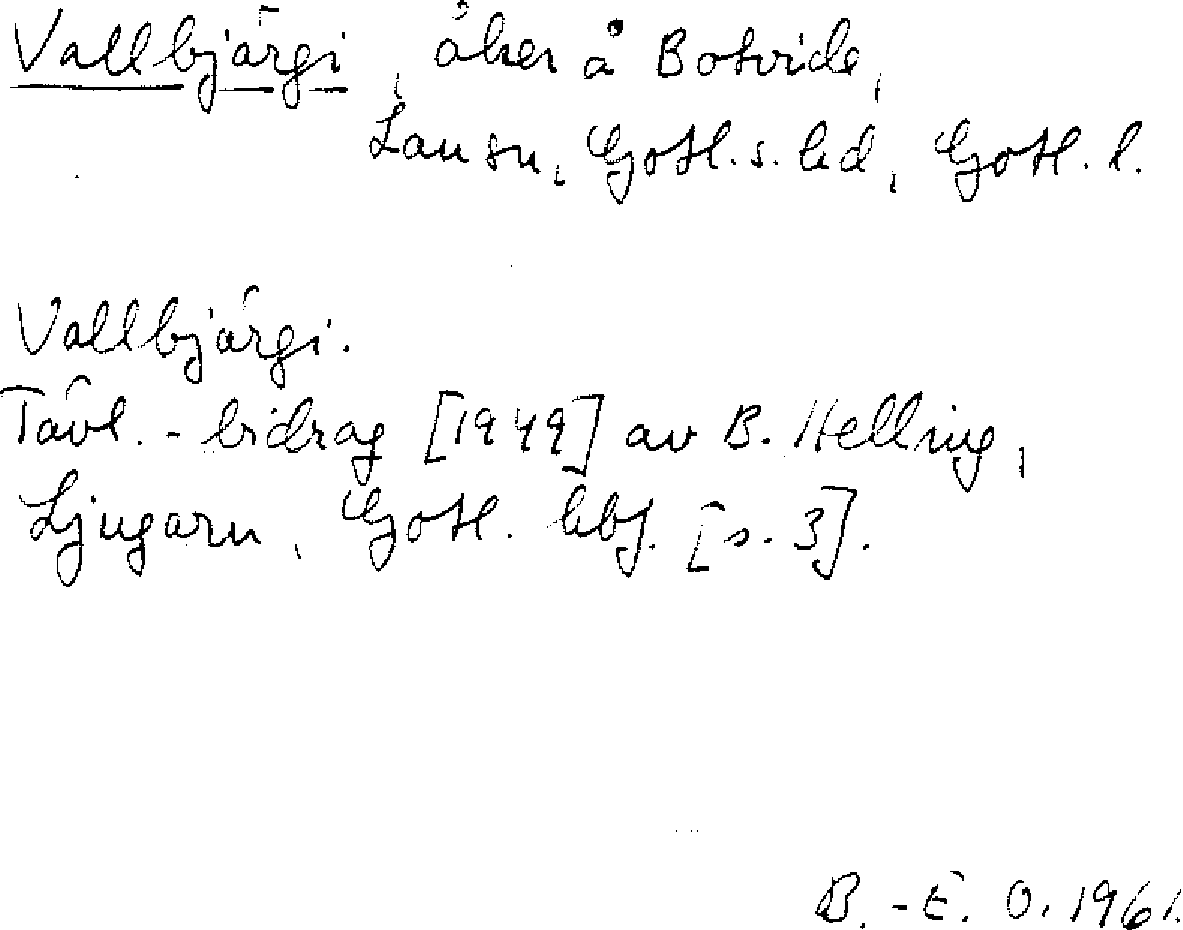 Vallbjärgi, åker å Botvide,
Lau sn, Gotl. s. hd, Gotl. l.
Vallbjärgi.
Tävl.-bidrag [1949] av B. Helling,
Ljugarn, Gotl. hbf. [s. 3].
B.-E. O. 1961.